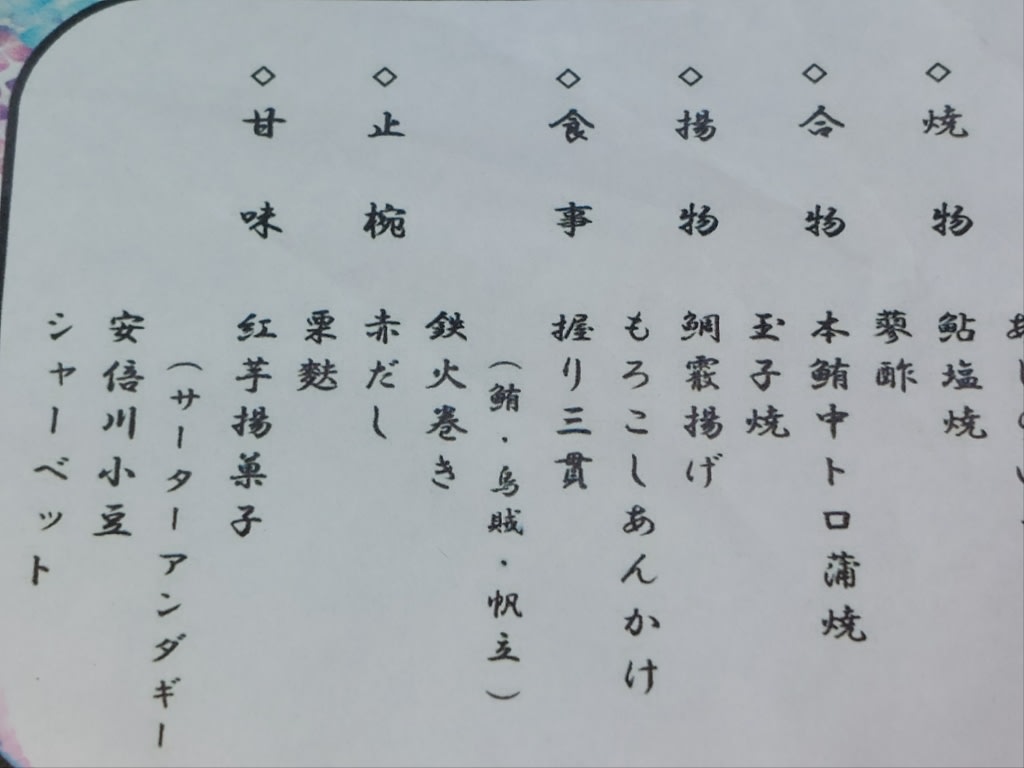 ◇焼物 鮎塩焼
蓼酢
◇合物 本鮪中トロ蒲焼
玉子焼
◇揚物 鯛霰揚げ
もろこしあんかけ
◇食事 握り三貫
（鮪・烏賊・帆立）
鉄火巻き
◇止椀 赤だし
粟麸
◇甘味 紅芋揚菓子
（サーターアンダギー
安倍川小豆
シャーベット